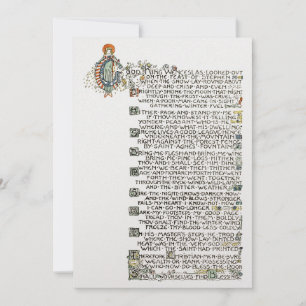 GOOD KING WENCESLAS LOOKED OUT
ON THE FEAST OF STEPHEN
WHEN THE SNOW LAY ROUND ABOUT
DEEP AND CRISP AND EVEN
BRIGHTLY SHONE THE MOON THAT NIGHT
THOUGH THE FROST WAS CRUEL
WHEN A POOR MAN CAME IN SIGHT
GATHERING WINTER FUEL
HITHER PAGE AND STAND BY ME
IF THOU KNOWST IT TELLING
YONDER PEASANT WHO IS HE
WHERE AND WHAT HIS DWELLING
SIRE HE LIVES A GOOD LEAGUE HENCE
UNDERNEATH THE MOUNTAIN
RIGHT AGAINST THE FOREST FENCE
BY SAINT AGNES FOUNTAIN
BRING ME FLESH AND BRING ME WINE
BRING ME PINE LOGS HITHER
THOU AND I SHALL SEE HIM DINE
WHEN WE BEAR THEM THITHER
PAGE AND MONARCH FORTH THEY WENT
FORTH THEY WENT TOGETHER
THROUGH THE RUDE WINDS WILD LAMENT
AND THE BITTER WEATHER
SIRE THE NIGHT GROWS DARKER NOW
AND THE WIND BLOWS STRONGER
FAILS MY HEART I KNOW NOT HOW
I CAN GO NO LONGER
MARK MY FOOTSTEPS MY GOOD PAGE
TREAD THOU IN
THOU SHALT FIND THE WINTER
FREEZE THY BLOOD LESS COLDLY
IN HIS MASTERS STEPS HE TROD
WHERE THE SNOW LAY DINTED
HEAT WAS IN THE VERY SOD
WHICH THE SAINT HAD PRINTED
THEREFORE CHRISTIAN MEN BE SURE
WEALTH OR RANK POSSESSING
YE WHO NOW DO BLESS THE POOR
SHALL YOURSELVES FIND BLESSING